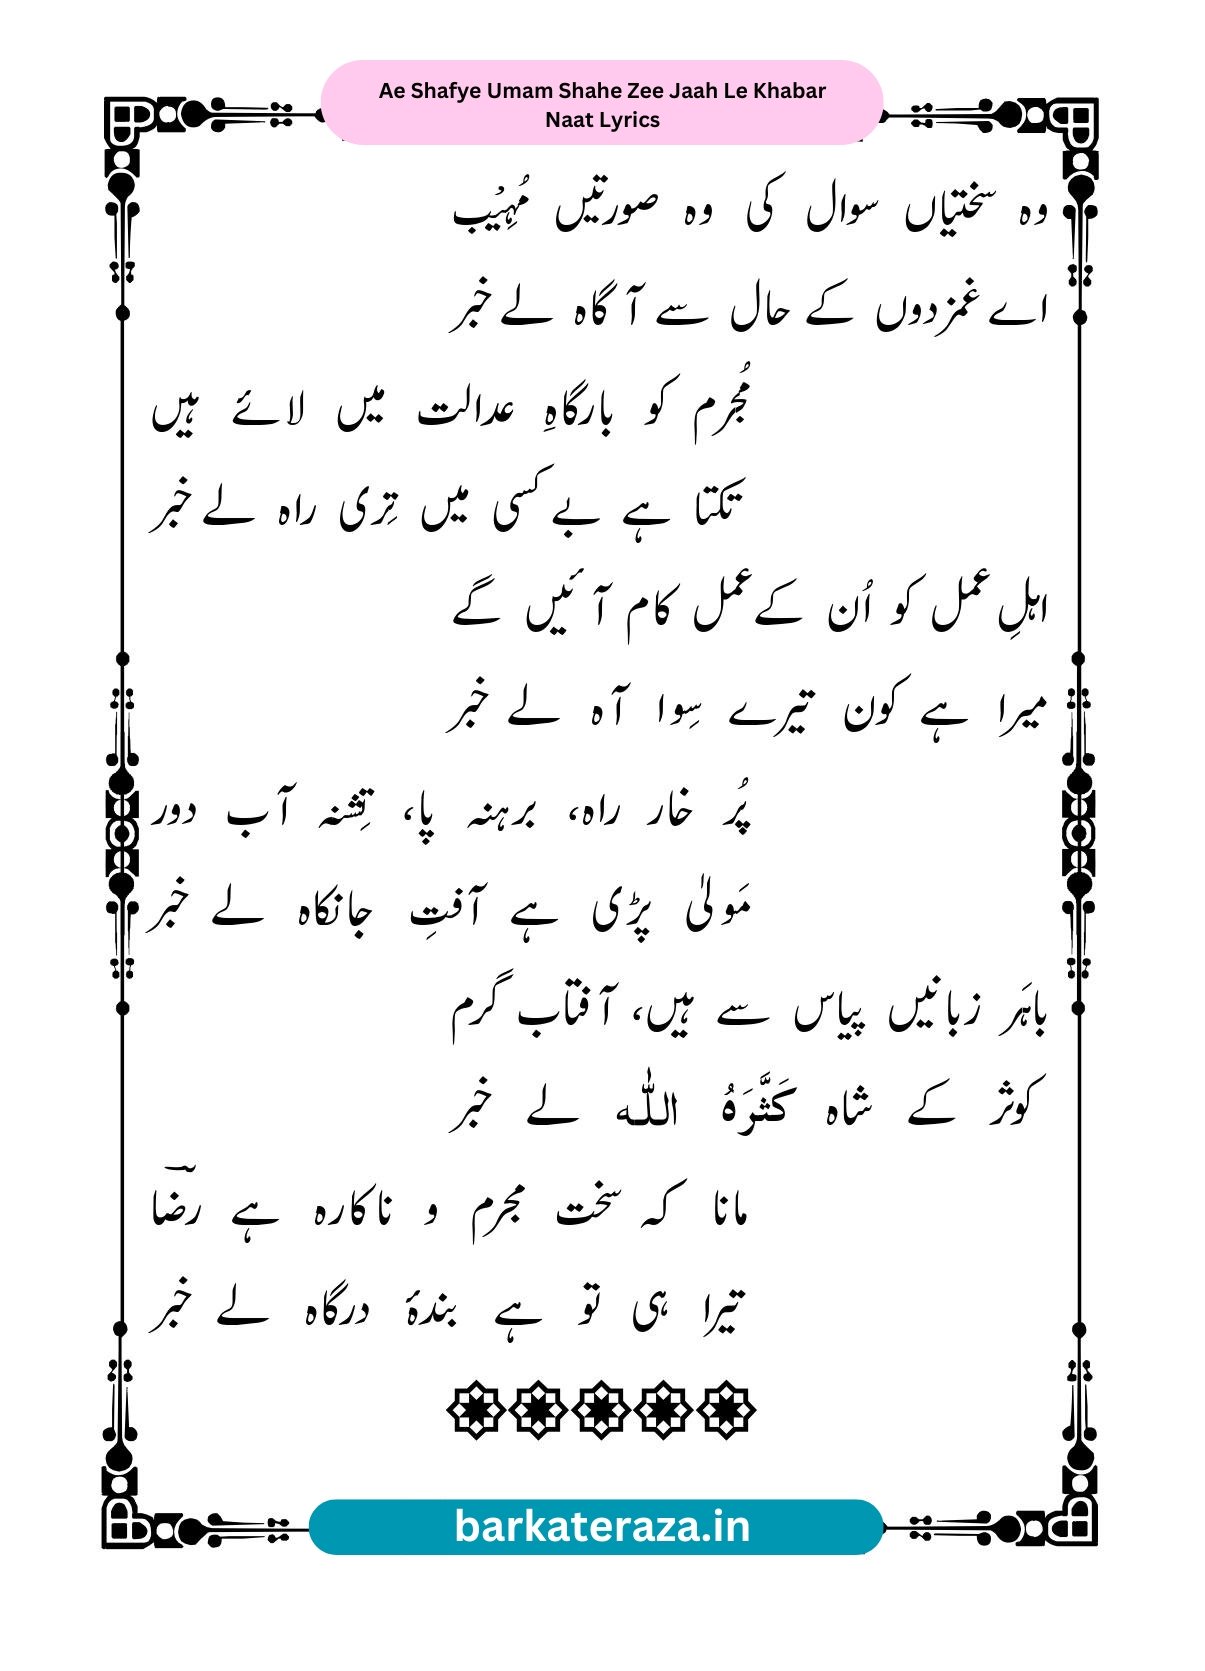 Ae Shafye Umam Shahe Zee Jaah Le Khabar
Naat Lyrics
وہ سختیاں سوال کی وہ صورتیں مُہِیْب
اے غمزدوں کے حال سے آگاہ لے خبر
مُجرم کو بارگاہِ عدالت میں لائے ہیں
تکتا ہے بے کسی میں تِری راہ لے خبر
اہلِ عمل کو اُن کے عمل کام آئیں گے
میرا ہے کون تیرے سِوا آہ لے خبر
پُر خار راہ، برہنہ پا، تِشنہ آب دور
مَولیٰ پڑی ہے آفتِ جانکاہ لے خبر
باہَر زبانیں پیاس سے ہیں، آفتاب گرم
کوثر کے شاہ کَثَّرَہُ اللّٰہ لے خبر
مانا کہ سخت مجرم و ناکارہ ہے رضؔا
تیرا ہی تو ہے بندۂ درگاہ لے خبر
barkateraza.in